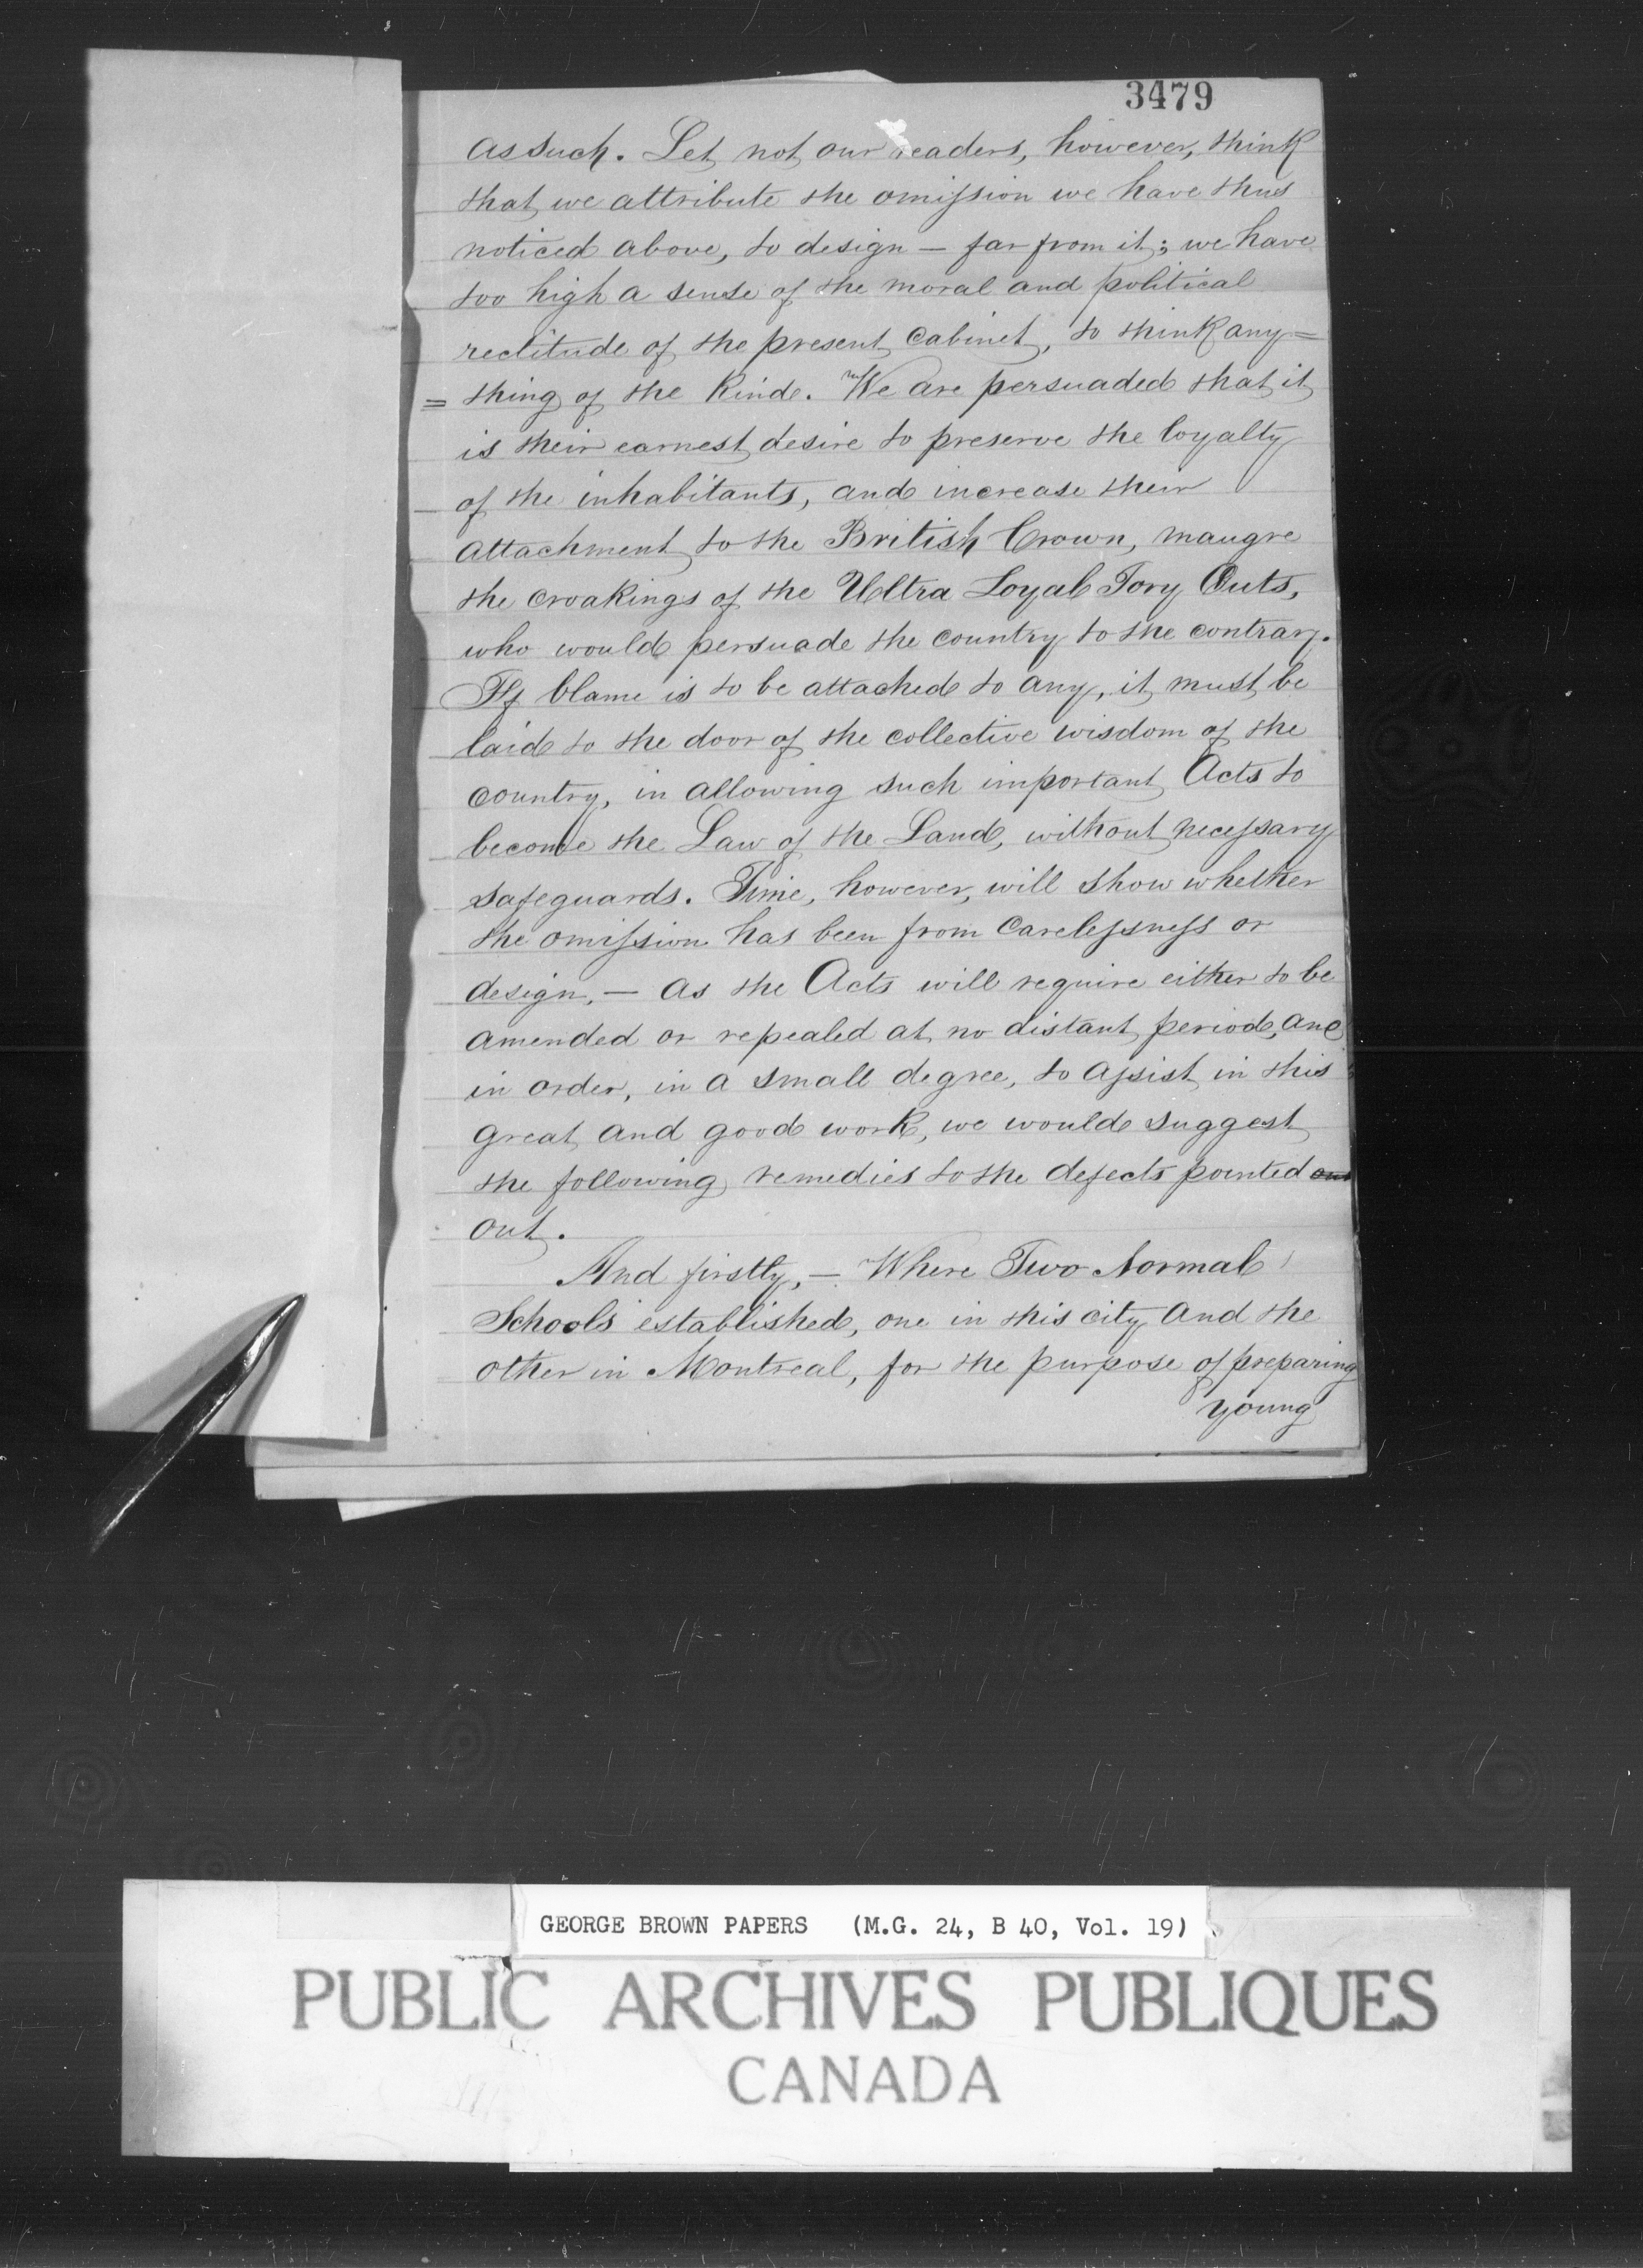 3479
as such. Let not our readers, however, think
that we attribute the omission we have thus
noticed above, to design — far from it; we have
too high a sense of the moral and political
rectitude of the present Cabinet, to think any=
= thing of the kind. We are persuaded that it
is their earnest desire to preserve the loyalty
of the inhabitants, and increase their
attachment to the British Crown, maugre
the croakings of the Ultra Loyal Tory Outs,
who would persuade the country to the contrary.
If blame is to be attached to any, it must be
laid to the door of the collective wisdom of the
country, in allowing such important Acts to
become the Law of the Land, without necessary
safeguards. Time, however, will show whether
the omission has been from carelessness or
design, — as the Acts will require either to be
amended or repealed at no distant period, and
in order, in a small degree, to assist in this
great and good work, we would suggest
the following remedies to the defects pointed out
out.
And firstly, — Where Two Normal
Schools established, one in this city and the
other in Montreal, for the purpose of preparing
young
GEORGE BROWN PAPERS (M.G. 24, B 40, Vol. 19)
PUBLIC ARCHIVES PUBLIQUES
CANADA